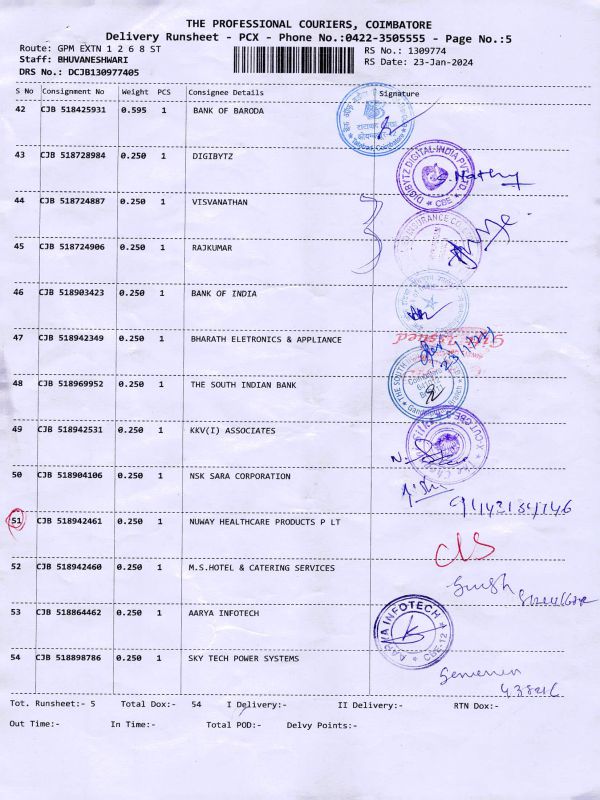 THE PROFESSIONAL COURIERS, COIMBATORE
Delivery Runsheet - PCX - Phone No.:0422-3505555 - Page No.:5
Route: GPM EXTN 1 2 6 8 ST
RS No.: 1309774
Staff: BHUVANESHWARI
RS Date: 23-Jan-2024
DRS No.: DCJB130977405
S No Consignment No Weight PCS Consignee Details Signature
42 CJB 518425931 0.595 1 BANK OF BARODA
43 CJB 518728984 0.250 1 DIGIBYTZ
DIGIBYTZ DIGITAL INDIA PVT LTD
* CBE *
S. Mathy
44 CJB 518724887 0.250 1 VISVANATHAN
INSURANCE CO
45 CJB 518724906 0.250 1 RAJKUMAR
46 CJB 518903423 0.250 1 BANK OF INDIA
47 CJB 518942349 0.250 1 BHARATH ELETRONICS & APPLIANCE
48 CJB 518969952 0.250 1 THE SOUTH INDIAN BANK
THE SOUTH
Coimbatore
49 CJB 518942531 0.250 1 KKV(I) ASSOCIATES
50 CJB 518904106 0.250 1 NSK SARA CORPORATION
51 CJB 518942461 0.250 1 NUWAY HEALTHCARE PRODUCTS P LT
52 CJB 518942460 0.250 1 M.S.HOTEL & CATERING SERVICES
53 CJB 518864462 0.250 1 AARYA INFOTECH
AARYA INFOTECH
* CBE-12 *
54 CJB 518898786 0.250 1 SKY TECH POWER SYSTEMS
Tot. Runsheet:- 5 Total Dox:- 54 I Delivery:- II Delivery:- RTN Dox:-
Out Time:- In Time:- Total POD:- Delvy Points:-